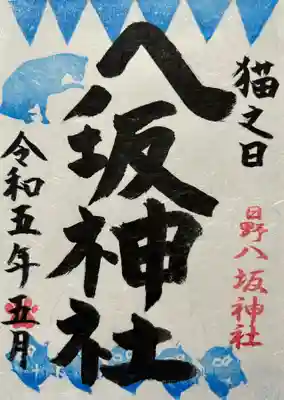 猫之日
日野八坂神社
八坂神社
令和五年五月